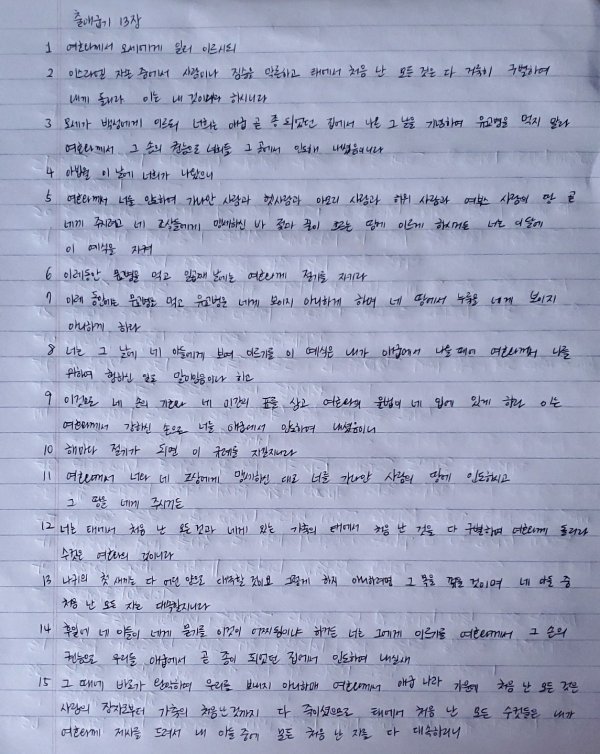 출애굽기 13장
1 여호와께서 모세에게 일러 이르시되
2 이스라엘 자손 중에서 사람이나 짐승을 막론하고 태에서 처음 난 모든 것은 다 거룩히 구별하여
내게 돌리라 이는 내 것이니라 하시니라
3 모세가 백성에게 이르되 너희는 애굽 곧 종 되었던 집에서 나온 그 날을 기념하여 유교병을 먹지 말라
여호와께서 그 손의 권능으로 너희를 그 곳에서 인도해 내셨음이니라
4 아빕월 이 날에 너희가 나왔으니
5 여호와께서 너를 인도하여 가나안 사람과 헷사람과 아모리 사람과 히위 사람과 여부스 사람의 땅 곧
네게 주시려고 네 조상들에게 맹세하신 바 젖과 꿀이 흐르는 땅에 이르게 하시거든 너는 이 달에
이 예식을 지켜
6 이레동안 무교병을 먹고 일곱째 날에는 여호와께 절기를 지키라
7 이레 동안에는 무교병을 먹고 유교병을 네게 보이지 아니하게 하며 네 땅에서 누룩을 네게 보이지
아니하게 하라
8 너는 그 날에 네 아들에게 보여 이르기를 이 예식은 내가 애굽에서 나올 때에 여호와께서 나를
위하여 행하신 일로 말미암음이라 하고
9 이것으로 네 손의 기호와 네 미간의 표를 삼고 여호와의 율법이 네 입에 있게 하라 이는
여호와께서 강하신 손으로 너를 애굽에서 인도하여 내셨음이니
10 해마다 절기가 되면 이 규례를 지킬지니라
11 여호와께서 너와 네 조상에게 맹세하신 대로 너를 가나안 사람의 땅에 인도하시고
그 땅을 네게 주시거든
12 너는 태에서 처음 난 모든 것과 네게 있는 가축의 태에서 처음 난 것을 다 구별하여 여호와께 돌리라
수컷은 여호와의 것이니라
13 나귀의 첫 새끼는 다 어린 양으로 대속할 것이요 그렇게 하지 아니하려면 그 목을 꺾을 것이며 네 아들 중
처음 난 모든 자는 대속할지니라
14 후일에 네 아들이 네게 묻기를 이것이 어찌 됨이냐 하거든 너는 그에게 이르기를 여호와께서 그 손의
권능으로 우리를 애굽에서 곧 종이 되었던 집에서 인도하여 내실새
15 그 때에 바로가 완악하여 우리를 보내지 아니하매 여호와께서 애굽 나라 가운데 처음 난 모든 것은
사람의 장자로부터 가축의 처음 난 것까지 다 죽이셨으므로 태에서 처음 난 모든 수컷들은 내가
여호와께 제사를 드려서 내 아들 중에 모든 처음 난 자를 다 대속하리니